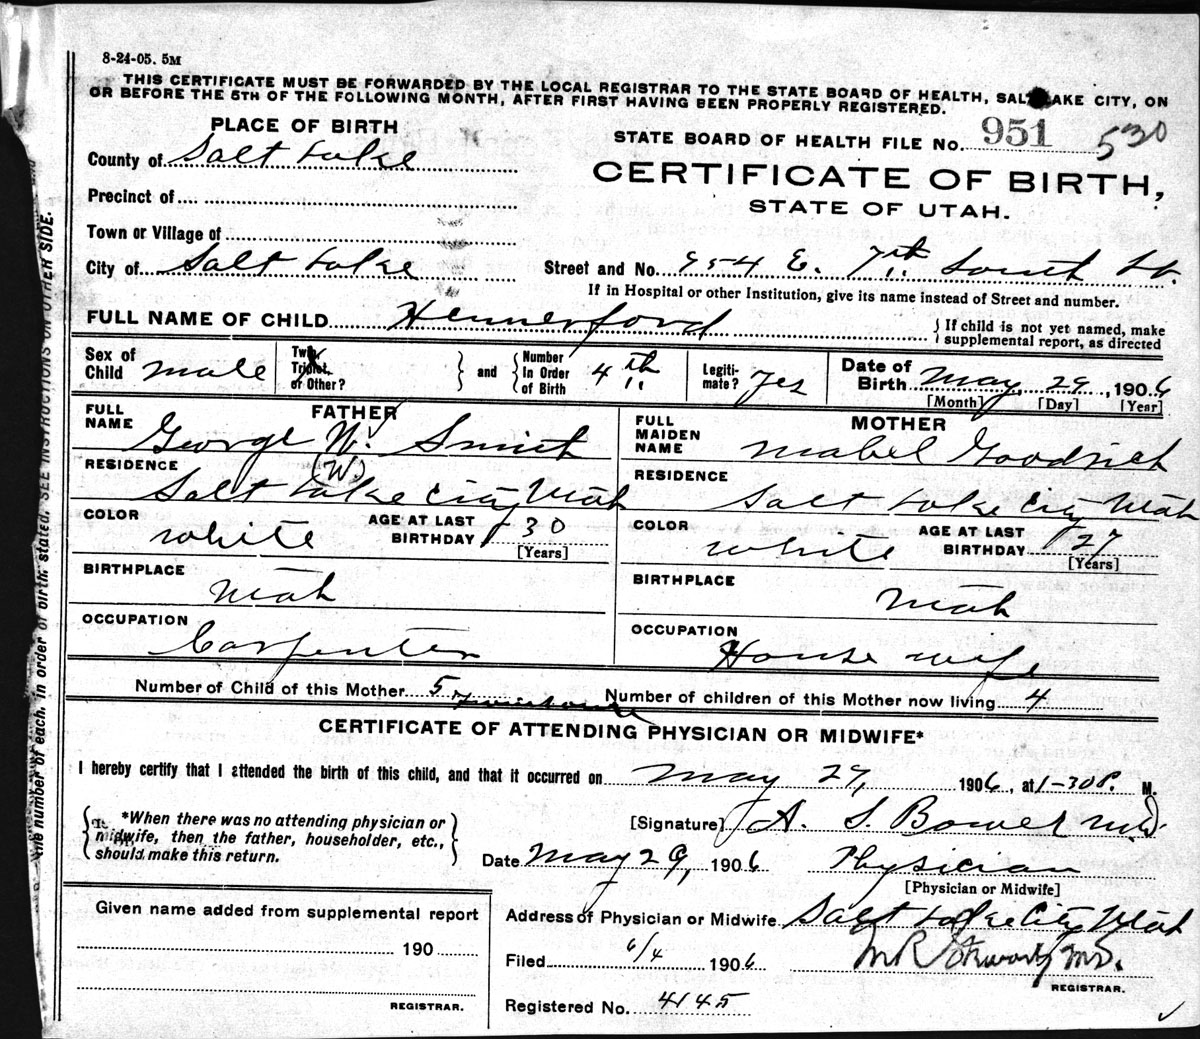 8-24-05. 5M
THIS CERTIFICATE MUST BE FORWARDED BY THE LOCAL REGISTRAR TO THE STATE BOARD OF HEALTH, SALT LAKE CITY, ON
OR BEFORE THE 5TH OF THE FOLLOWING MONTH, AFTER FIRST HAVING BEEN PROPERLY REGISTERED.
PLACE OF BIRTH
STATE BOARD OF HEALTH FILE NO. 951 530
County of Salt Lake
CERTIFICATE OF BIRTH,
STATE OF UTAH.
Precinct of
Town or Village of
City of Salt Lake
Street and No. 954 E. 7th South St.
If in Hospital or other Institution, give its name instead of Street and number.
FULL NAME OF CHILD Hennerford
} If child is not yet named, make
supplemental report, as directed
Sex of Child male
Twin, Triplet, or Other?
} and { Number In Order of Birth 4th
Legiti-mate? Yes
Date of Birth May 29, 1906
[Month] [Day] [Year]
FATHER
FULL NAME George W. Smith
(W.)
RESIDENCE Salt Lake City Utah
COLOR white
AGE AT LAST BIRTHDAY 30
[Years]
BIRTHPLACE Utah
OCCUPATION Carpenter
MOTHER
FULL MAIDEN NAME Mabel Goodrich
RESIDENCE Salt Lake City Utah
COLOR white
AGE AT LAST BIRTHDAY 27
[Years]
BIRTHPLACE Utah
OCCUPATION House wife
Number of Child of this Mother 5
Number of children of this Mother now living 4
CERTIFICATE OF ATTENDING PHYSICIAN OR MIDWIFE*
I hereby certify that I attended the birth of this child, and that it occurred on May 29, 1906, at 1-30 P. M.
*When there was no attending physician or
midwife, then the father, householder, etc.,
should make this return.
[Signature] A. S. Bower M.D.
Date May 29, 1906 Physician
[Physician or Midwife]
Given name added from supplemental report
190
REGISTRAR.
Address of Physician or Midwife Salt Lake City Utah
Filed 6/4 1906
REGISTRAR.
Registered No. 4145
the number of each, in order of birth, stated. SEE INSTRUCTIONS ON OTHER SIDE.